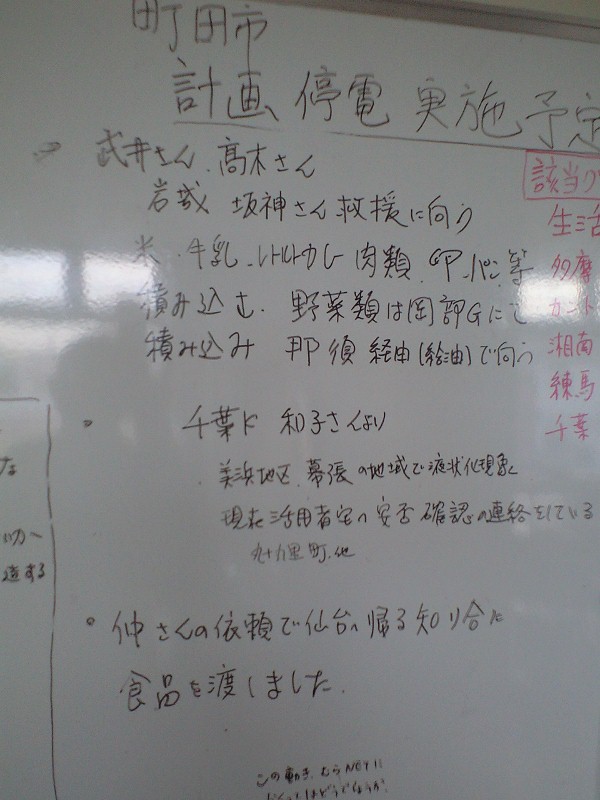 町田市
計画停電 実施予定
武井さん、高木さん
岩哉 坂神さん救援に向う
米、牛乳、レトルトカレー 肉類、卵、パン等
積み込む、野菜類は岡部Gにて
積み込み 那須経由(給油)で向う
該当
生活
多摩
湘南
練馬
千葉
千葉K 和子さんより
美浜地区、幕張の地域で液状化現象
現在活用者宅へ安否確認の連絡をしている
九十九里町、他
仲さんの依頼で仙台へ帰る知り合に
食品を渡しました。
この動き、むらNETに